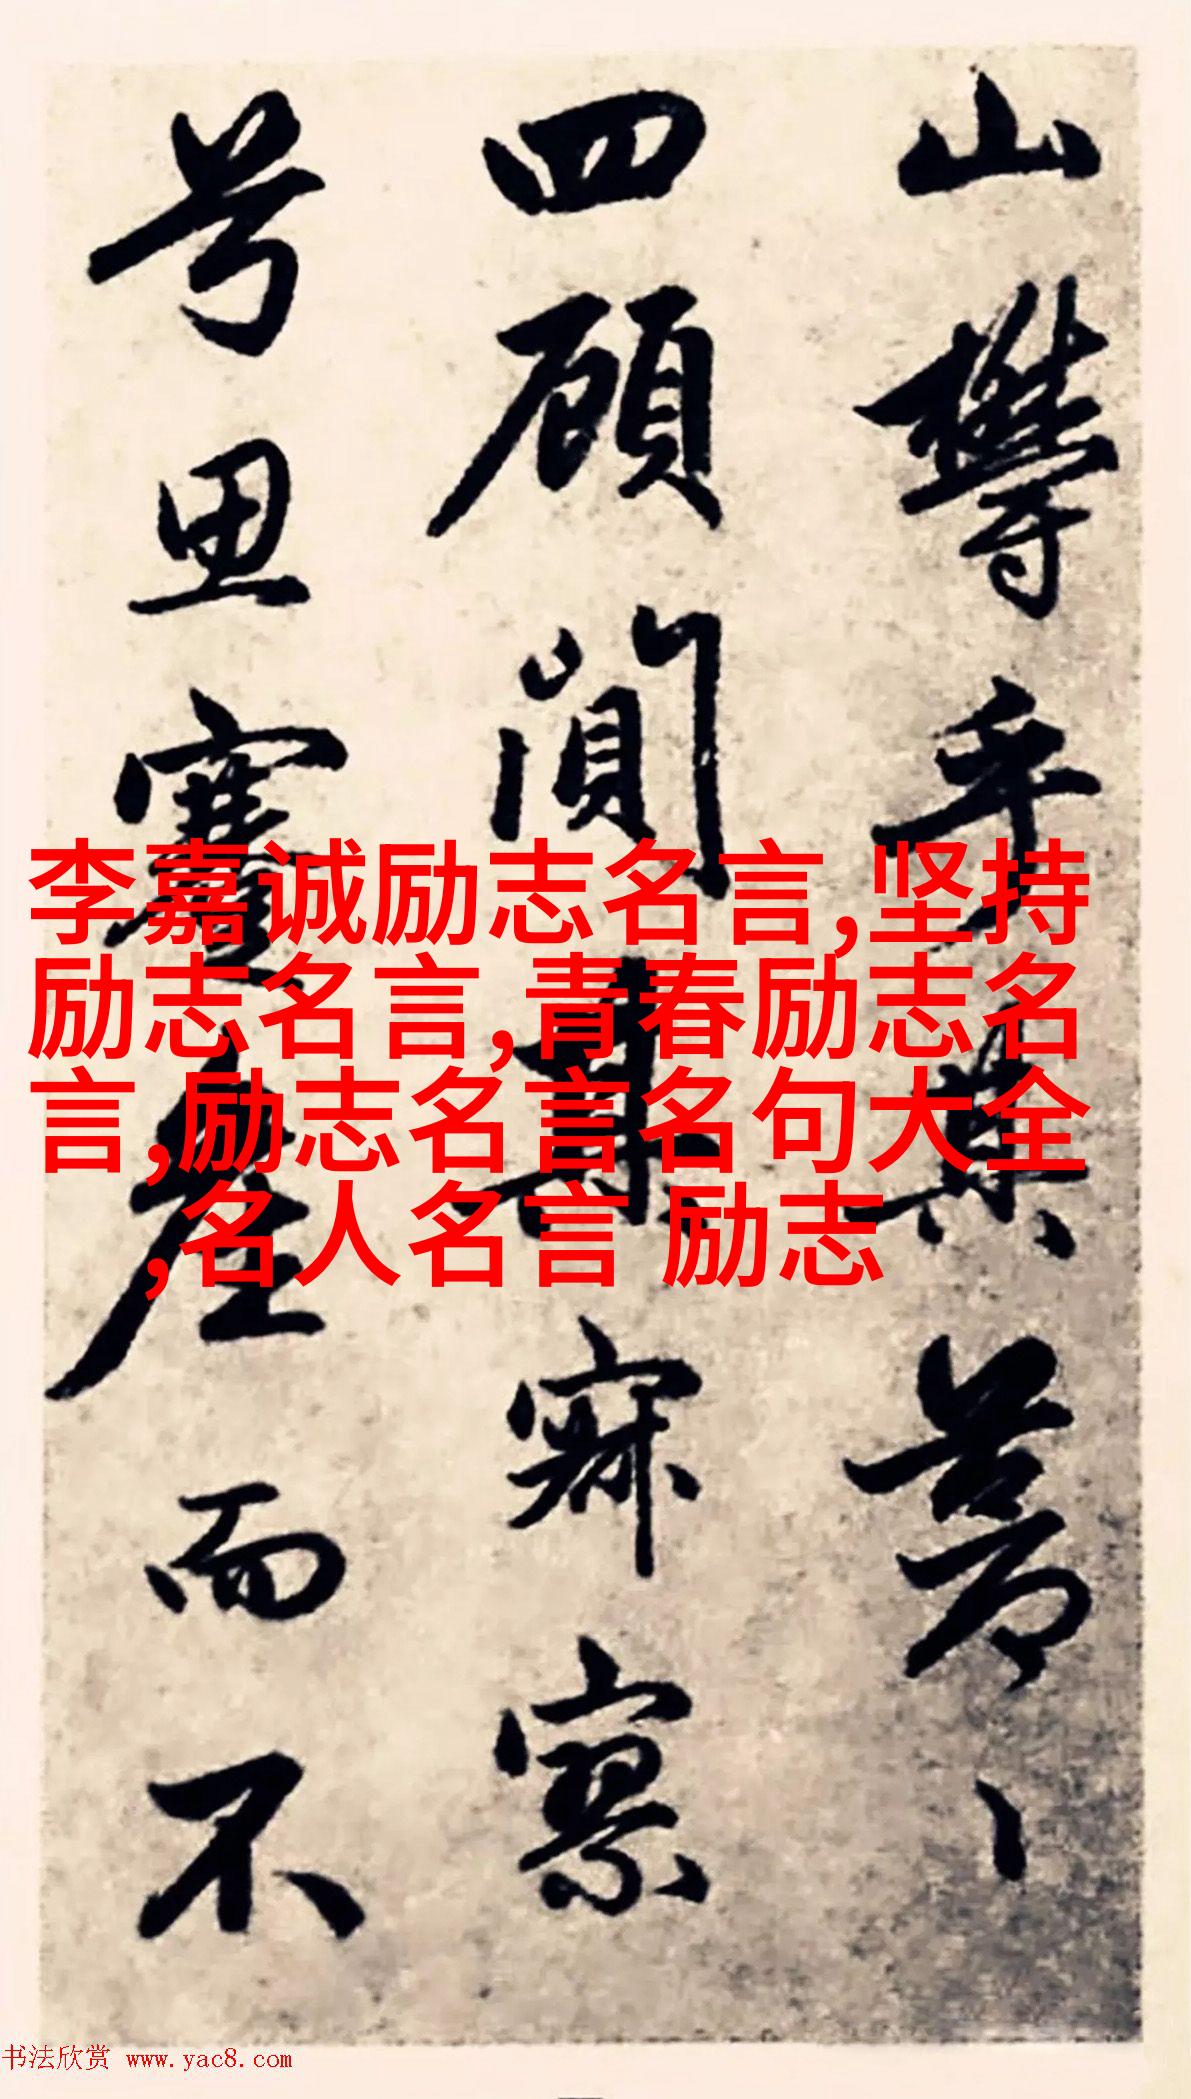 山欝乎其蒼〻
四顧闃其寂寥
兮思蹇產而不
李嘉诚励志名言,坚持
励志名言,青春励志名
言,励志名言名句大全
,名人名言 励志
书法欣赏 www.yac8.com